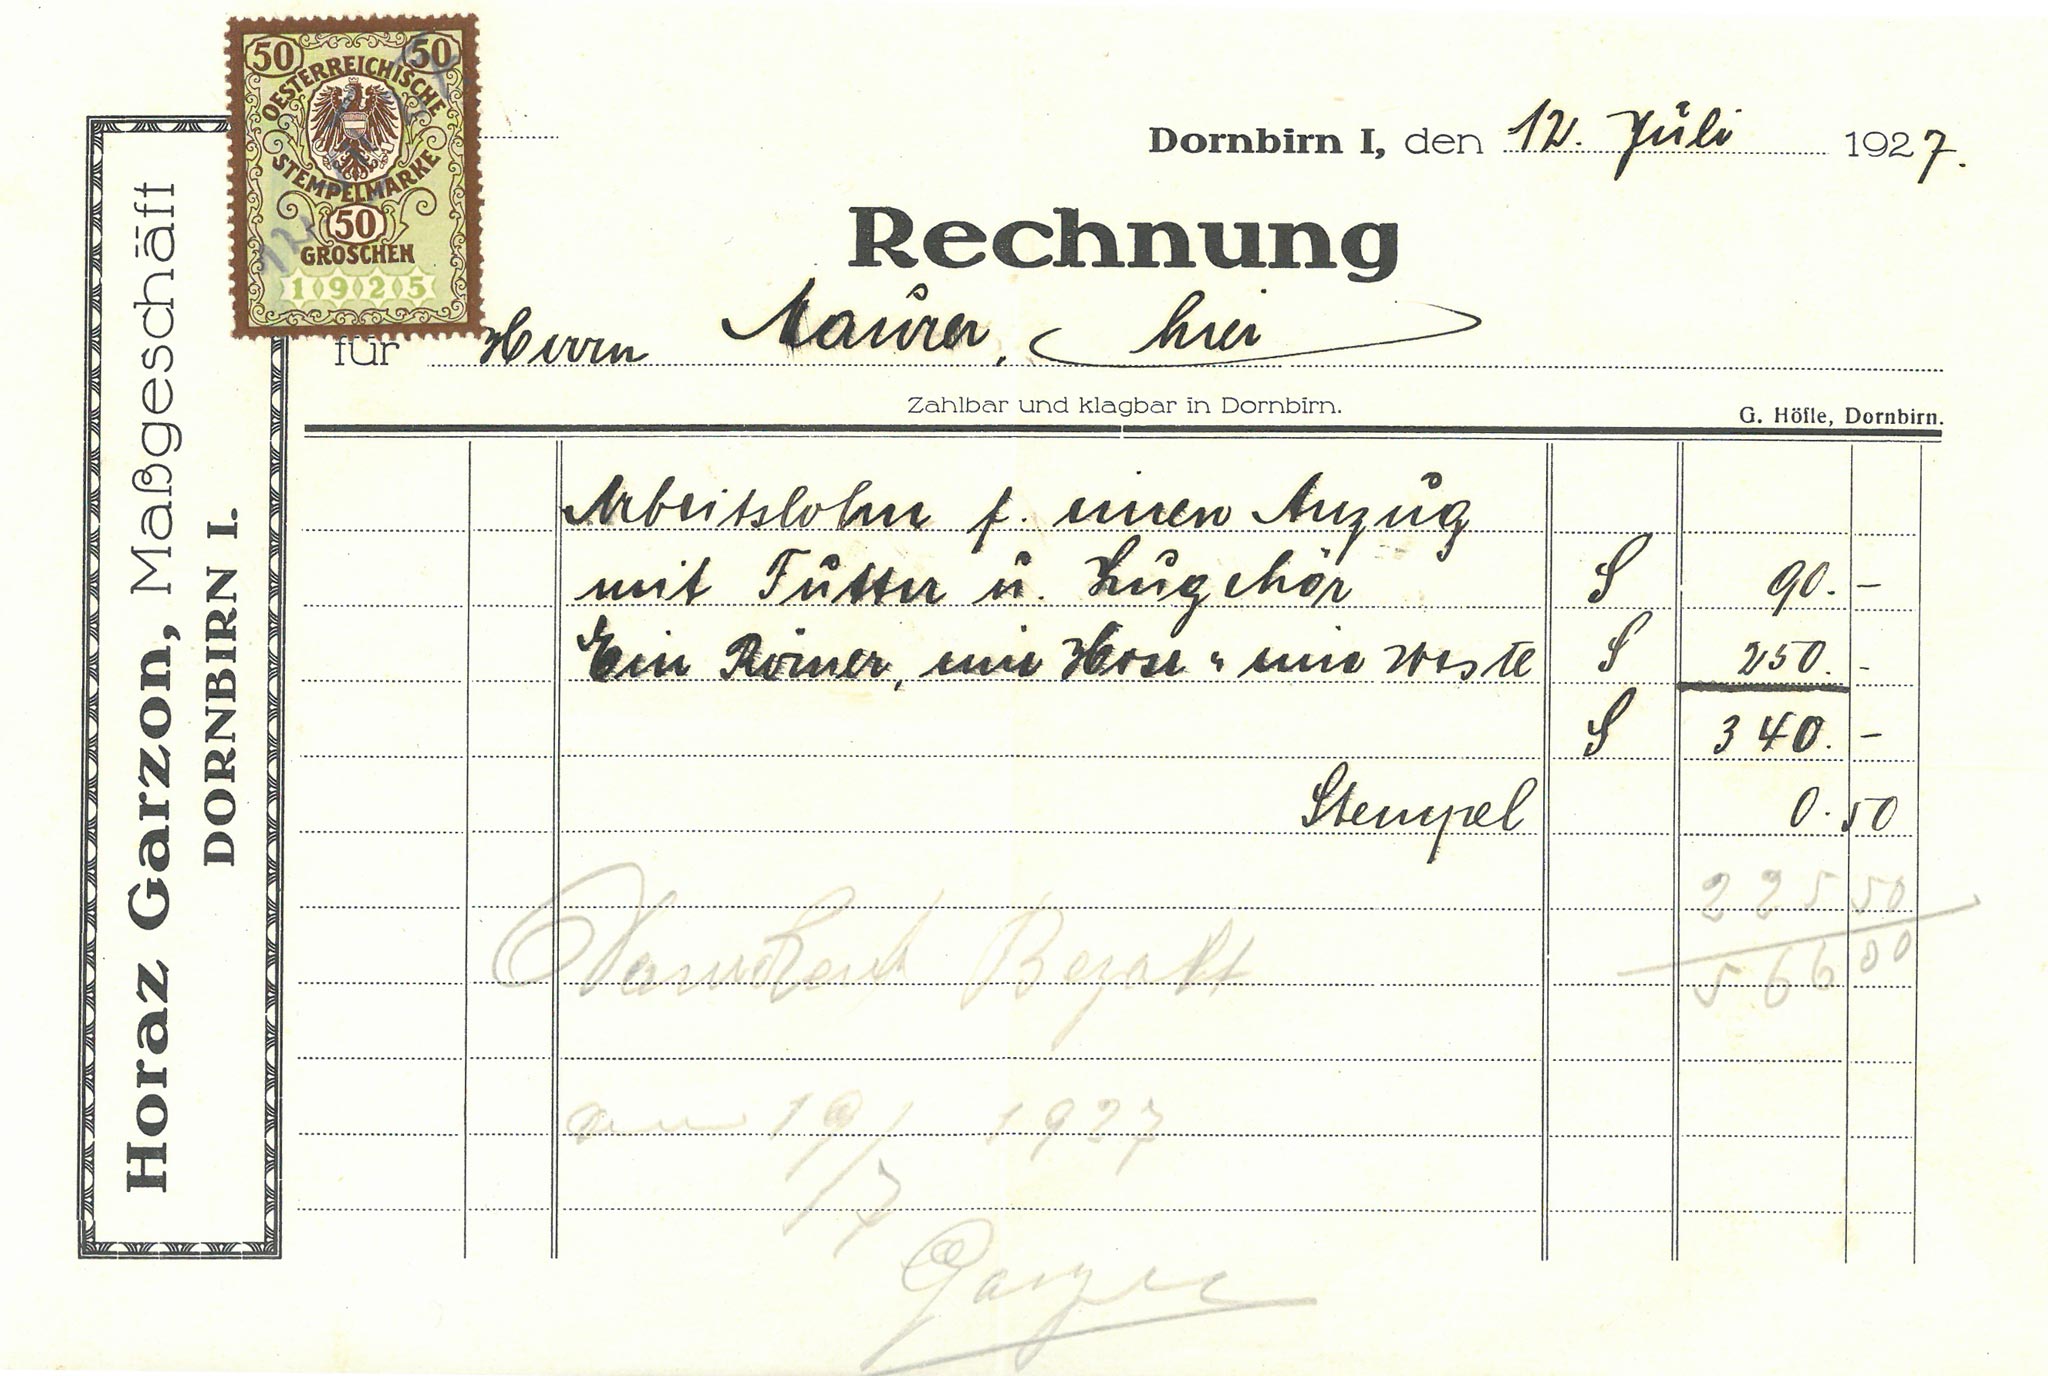 50 50
OESTERREICHISCHE
STEMPELMARKE
50
GROSCHEN
1925
Horaz Garzon, Maßgeschäft
DORNBIRN I.
Dornbirn I, den 12. Juli 1927.
Rechnung
für Herrn Maurer, hier
Zahlbar und klagbar in Dornbirn.
G. Höfle, Dornbirn.
Arbeitslohn f. einen Anzug
mit Futter u. Zugehör S 90.-
Ein , eine Hose " eine Weste S 250.-
S 340.-
Stempel 0.50
225 50
566 00
Dankend Bezahlt
am 19/7 1927
Garzon